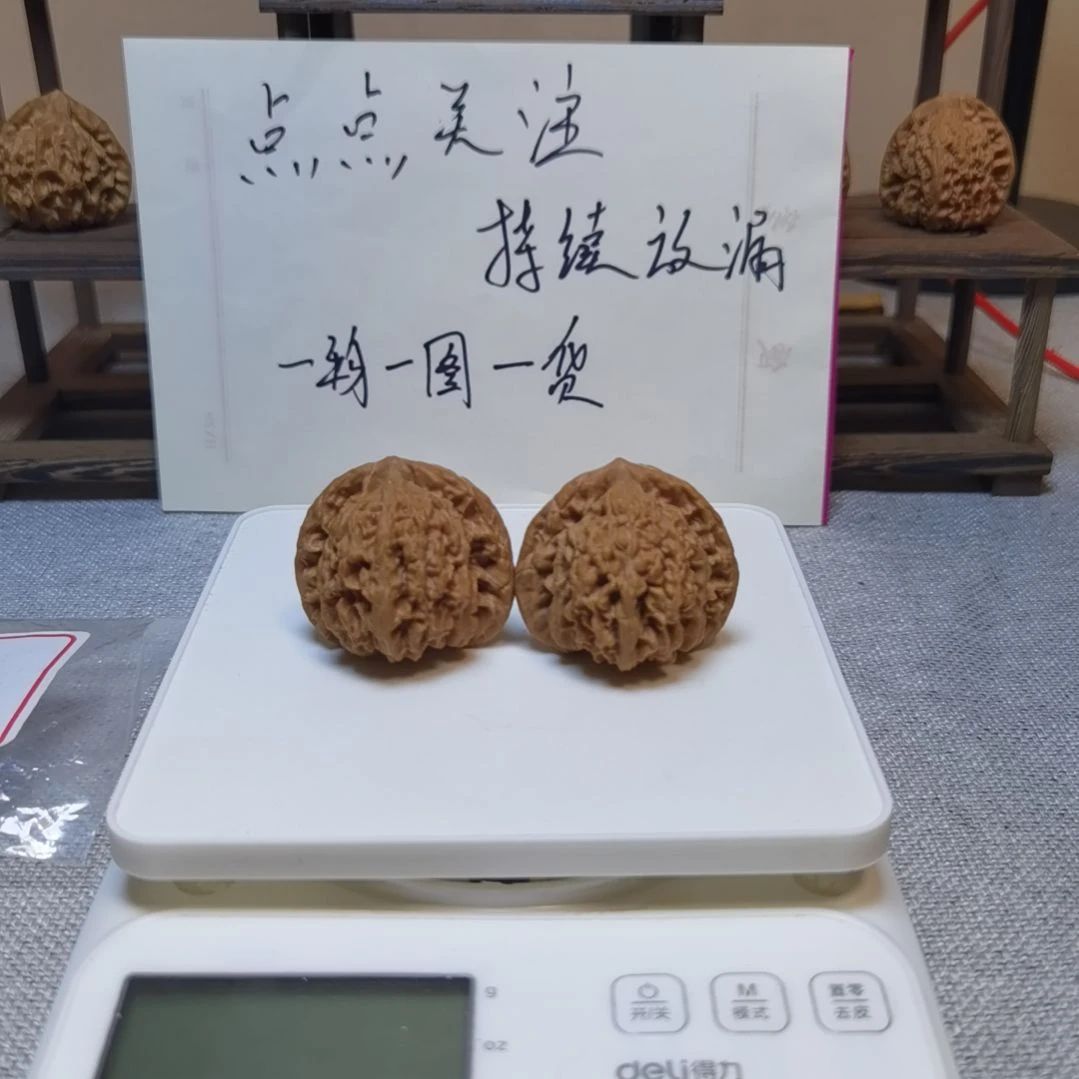 点点关注
持续放漏
一物一图一货
g
oz
开/关
M
模式
置零
去皮
deli得力